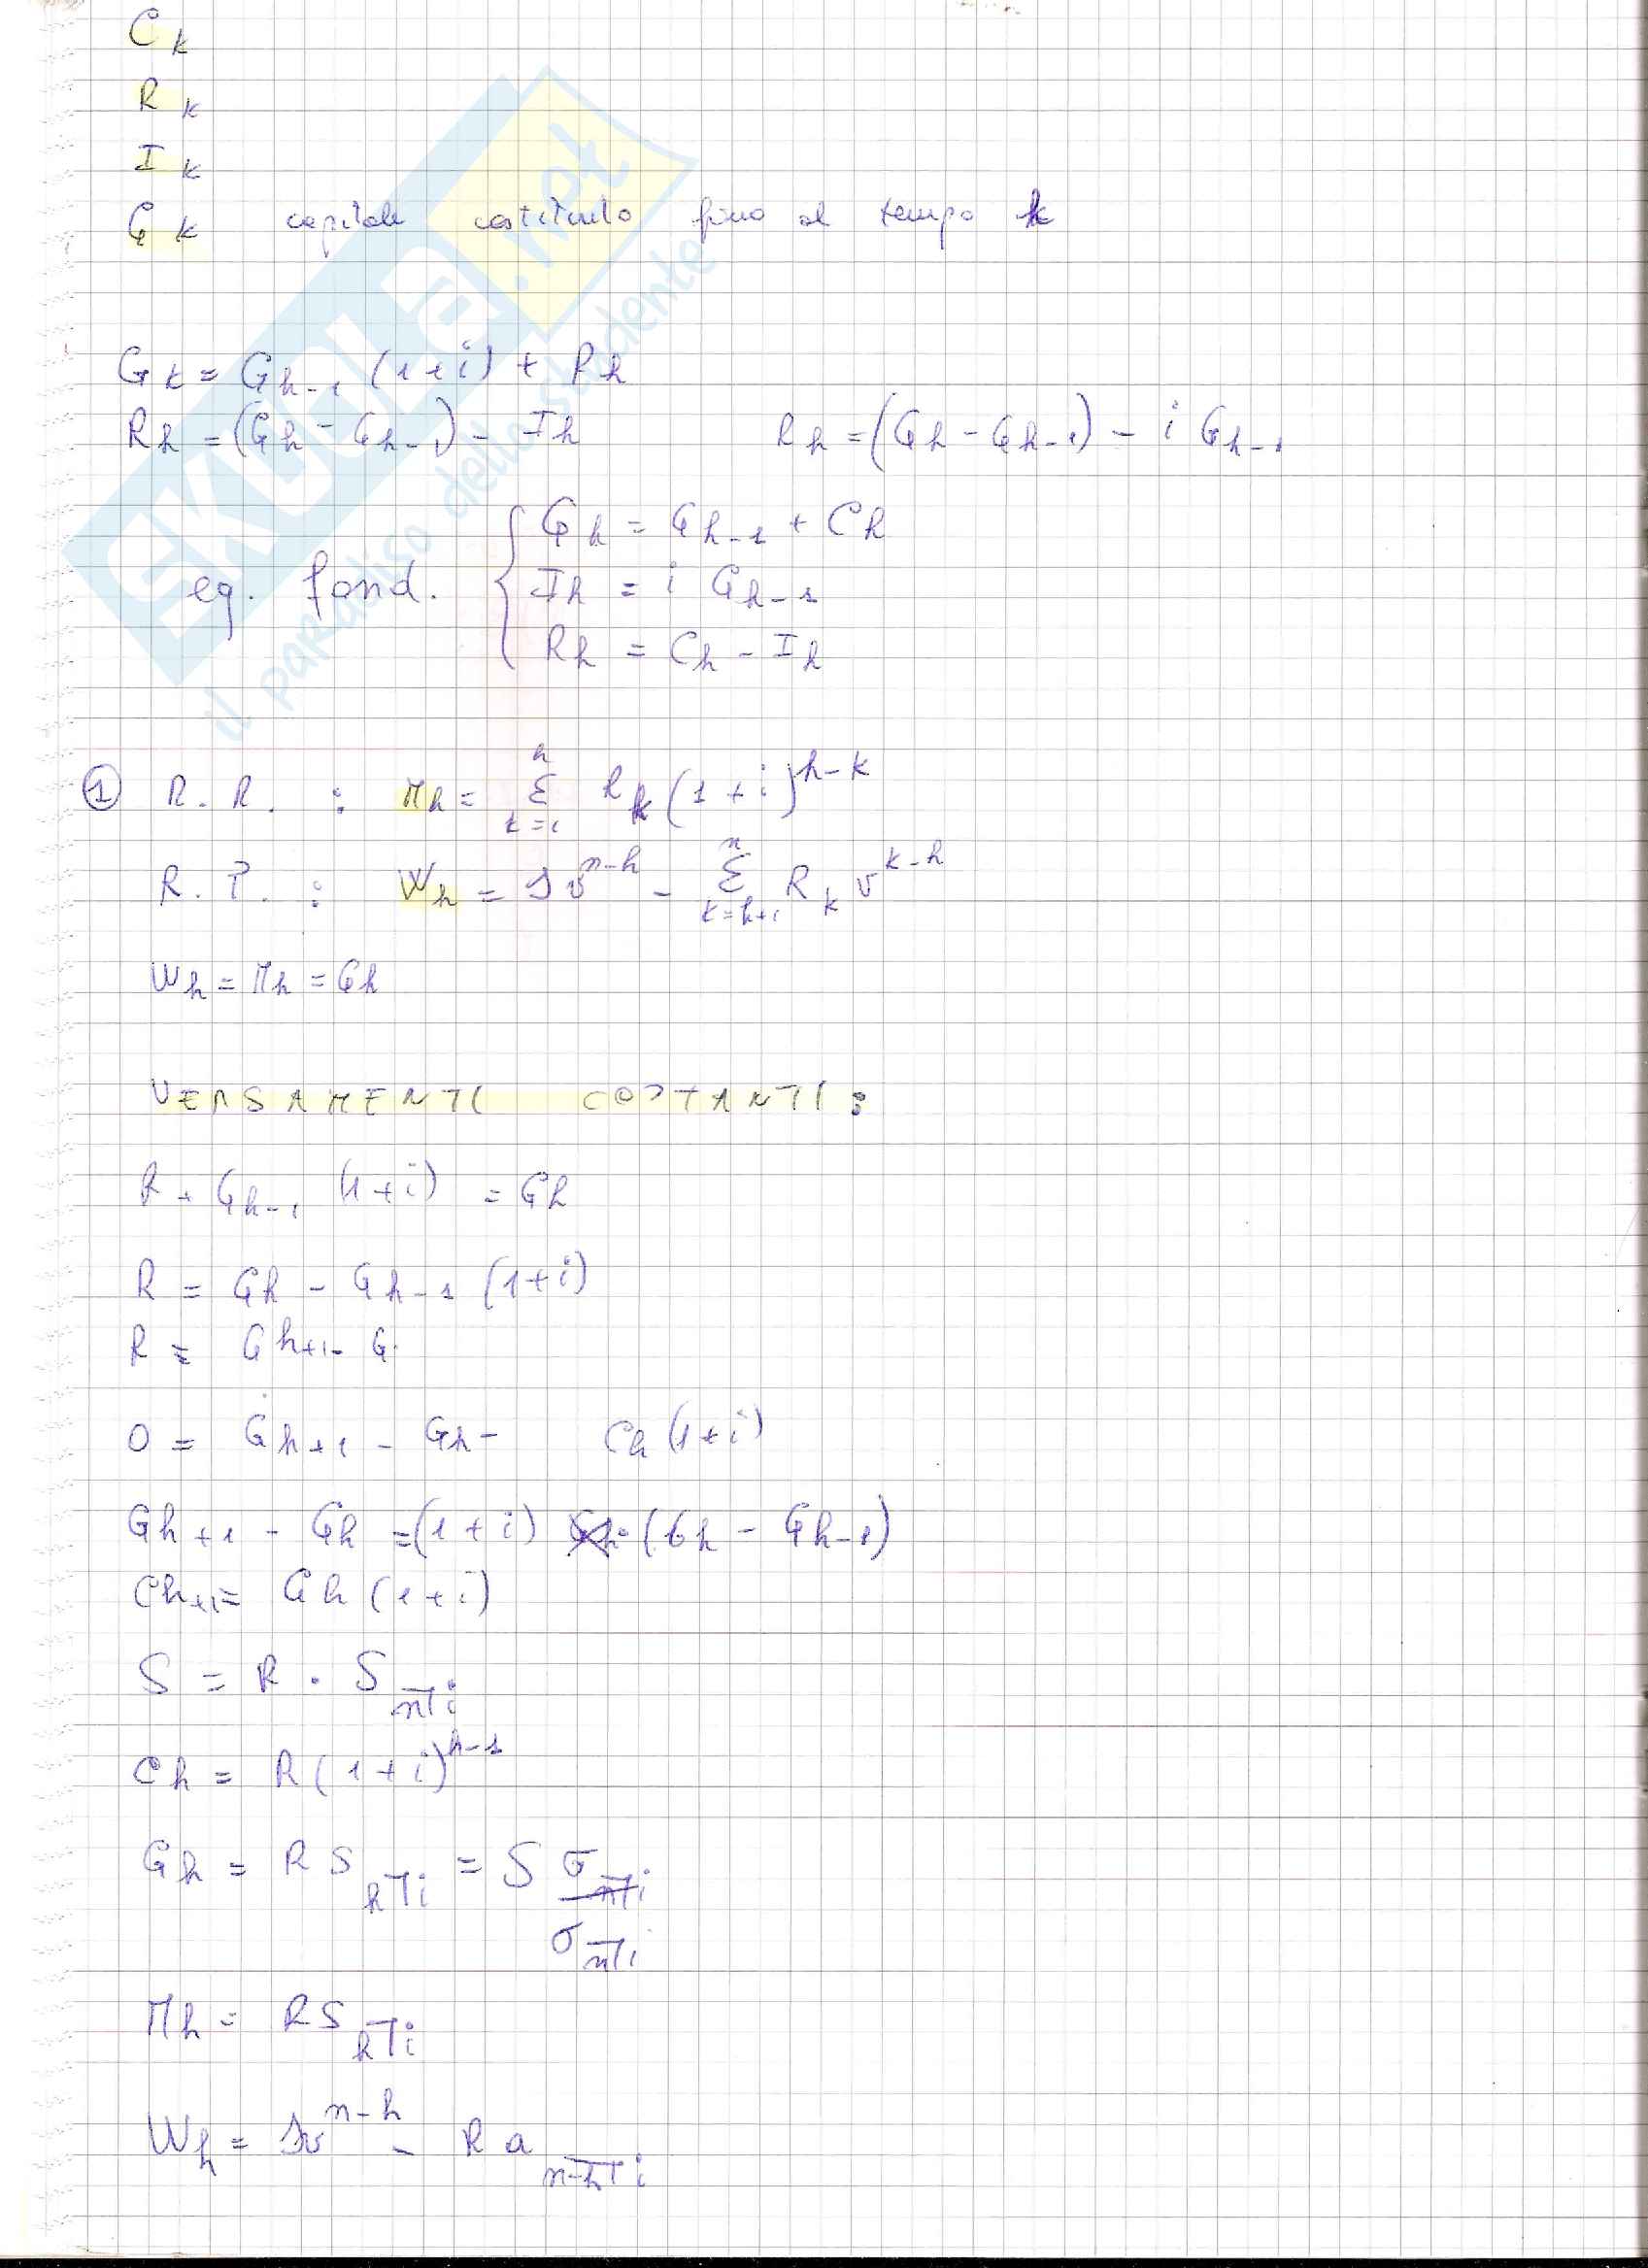 C_k
R_k
I_k
G_k capitale costituito fino al tempo k
G_k = G_{h-1} (1+i) + R_h
R_h = (G_h - G_{h-1}) - I_h    R_h = (G_h - G_{h-1}) - i G_{h-1}
G_h = G_{h-1} + C_h
eq. fond. { I_h = i G_{h-1}
R_h = C_h - I_h
① R.R. : M_h = Σ_{k=1}^{h} R_k (1+i)^{h-k}
R.P. : W_h = S v^{n-h} - Σ_{k=h+1}^{n} R_k v^{k-h}
W_h = M_h = G_h
VERSAMENTI COSTANTI :
R + G_{h-1} (1+i) = G_h
R = G_h - G_{h-1} (1+i)
R = G_{h+1} - G
0 = G_{h+1} - G_h - C_h (1+i)
G_{h+1} - G_h = (1+i) (G_h - G_{h-1})
C_{h+1} = G_h (1+i)
S = R · S_{n̅| i}
C_h = R (1+i)^{h-1}
G_h = R S_{h̅| i} = S σ_{n̅| i} / σ_{n̅| i}
M_h = R S_{h̅| i}
W_h = S v^{n-h} - R a_{n-h̅| i}
SKUOLA.net
il paradiso dello studente